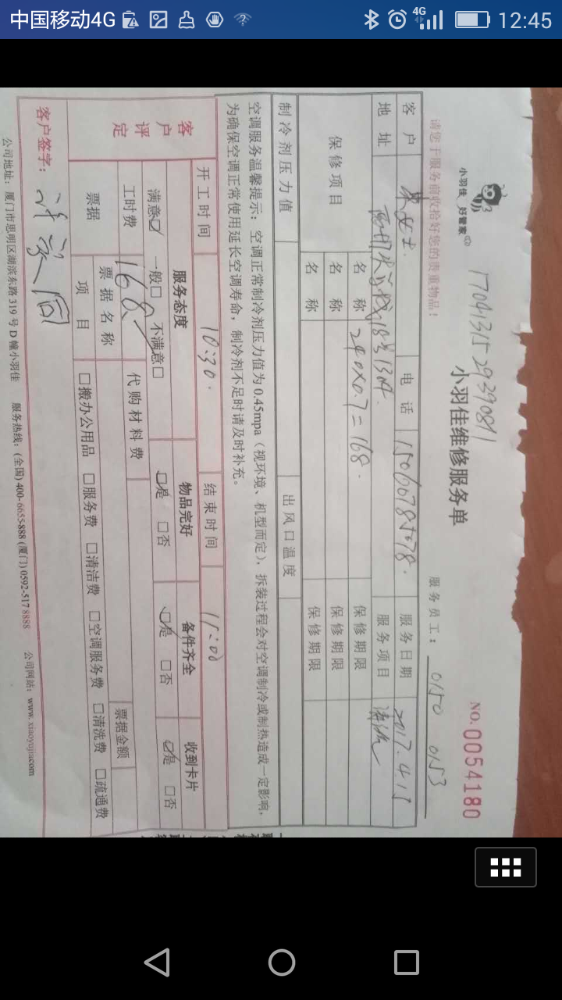 中国移动4G
4G
12:45
小羽佳 好管家
请您于服务前收拾好您的贵重物品:
小羽佳维修服务单
NO.0054180
服务员工: 0150 0153
客户
电话
服务日期 2017.4.15
地址
服务项目
保修项目
名称 240×0.7=168.
保修期限
名称
保修期限
名称
保修期限
制冷剂压力值
出风口温度
空调服务温馨提示: 空调正常制冷剂压力值为0.45mpa (视环境、机型而定), 拆装过程会对空调制冷或制热造成一定影响,
为确保空调正常使用延长空调寿命, 制冷剂不足时请及时补充。
开工时间 10:30.
结束时间 11:00
客户评定
服务态度
物品完好
备件齐全
收到卡片
满意☑ 一般□ 不满意□
☑是 □否
☑是 □否
☑是 □否
工时费 168
代购材料费
票据
票据名称
票据金额
项目
□搬办公用品 □服务费 □清洁费 □空调服务费 □清洗费 □疏通费
客户签字:
公司地址: 厦门市思明区湖滨东路319号D幢小羽佳 服务热线: (全国) 400-6655-888 (厦门) 0592-517 8888 公司网站: www.xiaoyujia.com